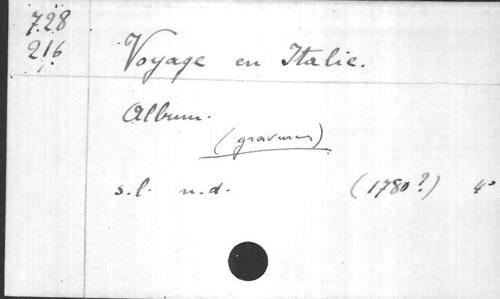 728
216
Voyage en Italie.
Album.
(gravures)
s.l. n.d. (1780?) 4°